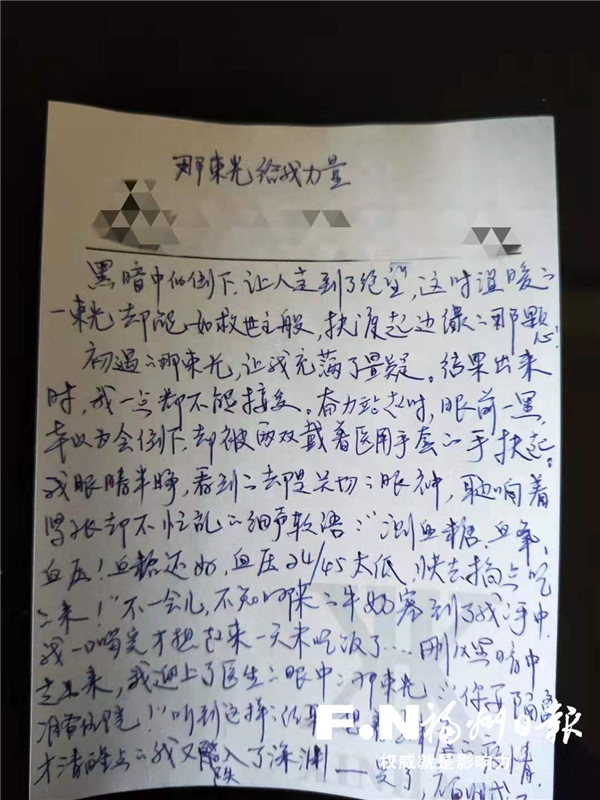 那束光给我力量
黑暗中的倒下,让人走到了绝望,这时温暖的
一束光却能如救世主般,扶渡起边缘的那颗心
初遇的那束光,让我充满了置疑。结果出来
时,我一点都不能接受。奋力站起时,眼前一黑,
本以为会倒下,却被两双戴着医用手套的手扶起。
我眼睛半睁,看到的却是关切的眼神,耳响着
紧张却不忙乱的细声软语:"测血糖、血氧、
血压!血糖还好,血压24/45太低,快去搞点吃
的来!"不一会儿,不知哪来的牛奶塞到了我的手中.
我一口喝完才想起来一天未吃饭了....刚从黑暗中
走出来,我迎上了医生的眼中的那束光:"你要隔离
住院!"听到这样的
才清醒点的我又跌入了深渊——完了,
F.N 福州日报
权威就是影响力